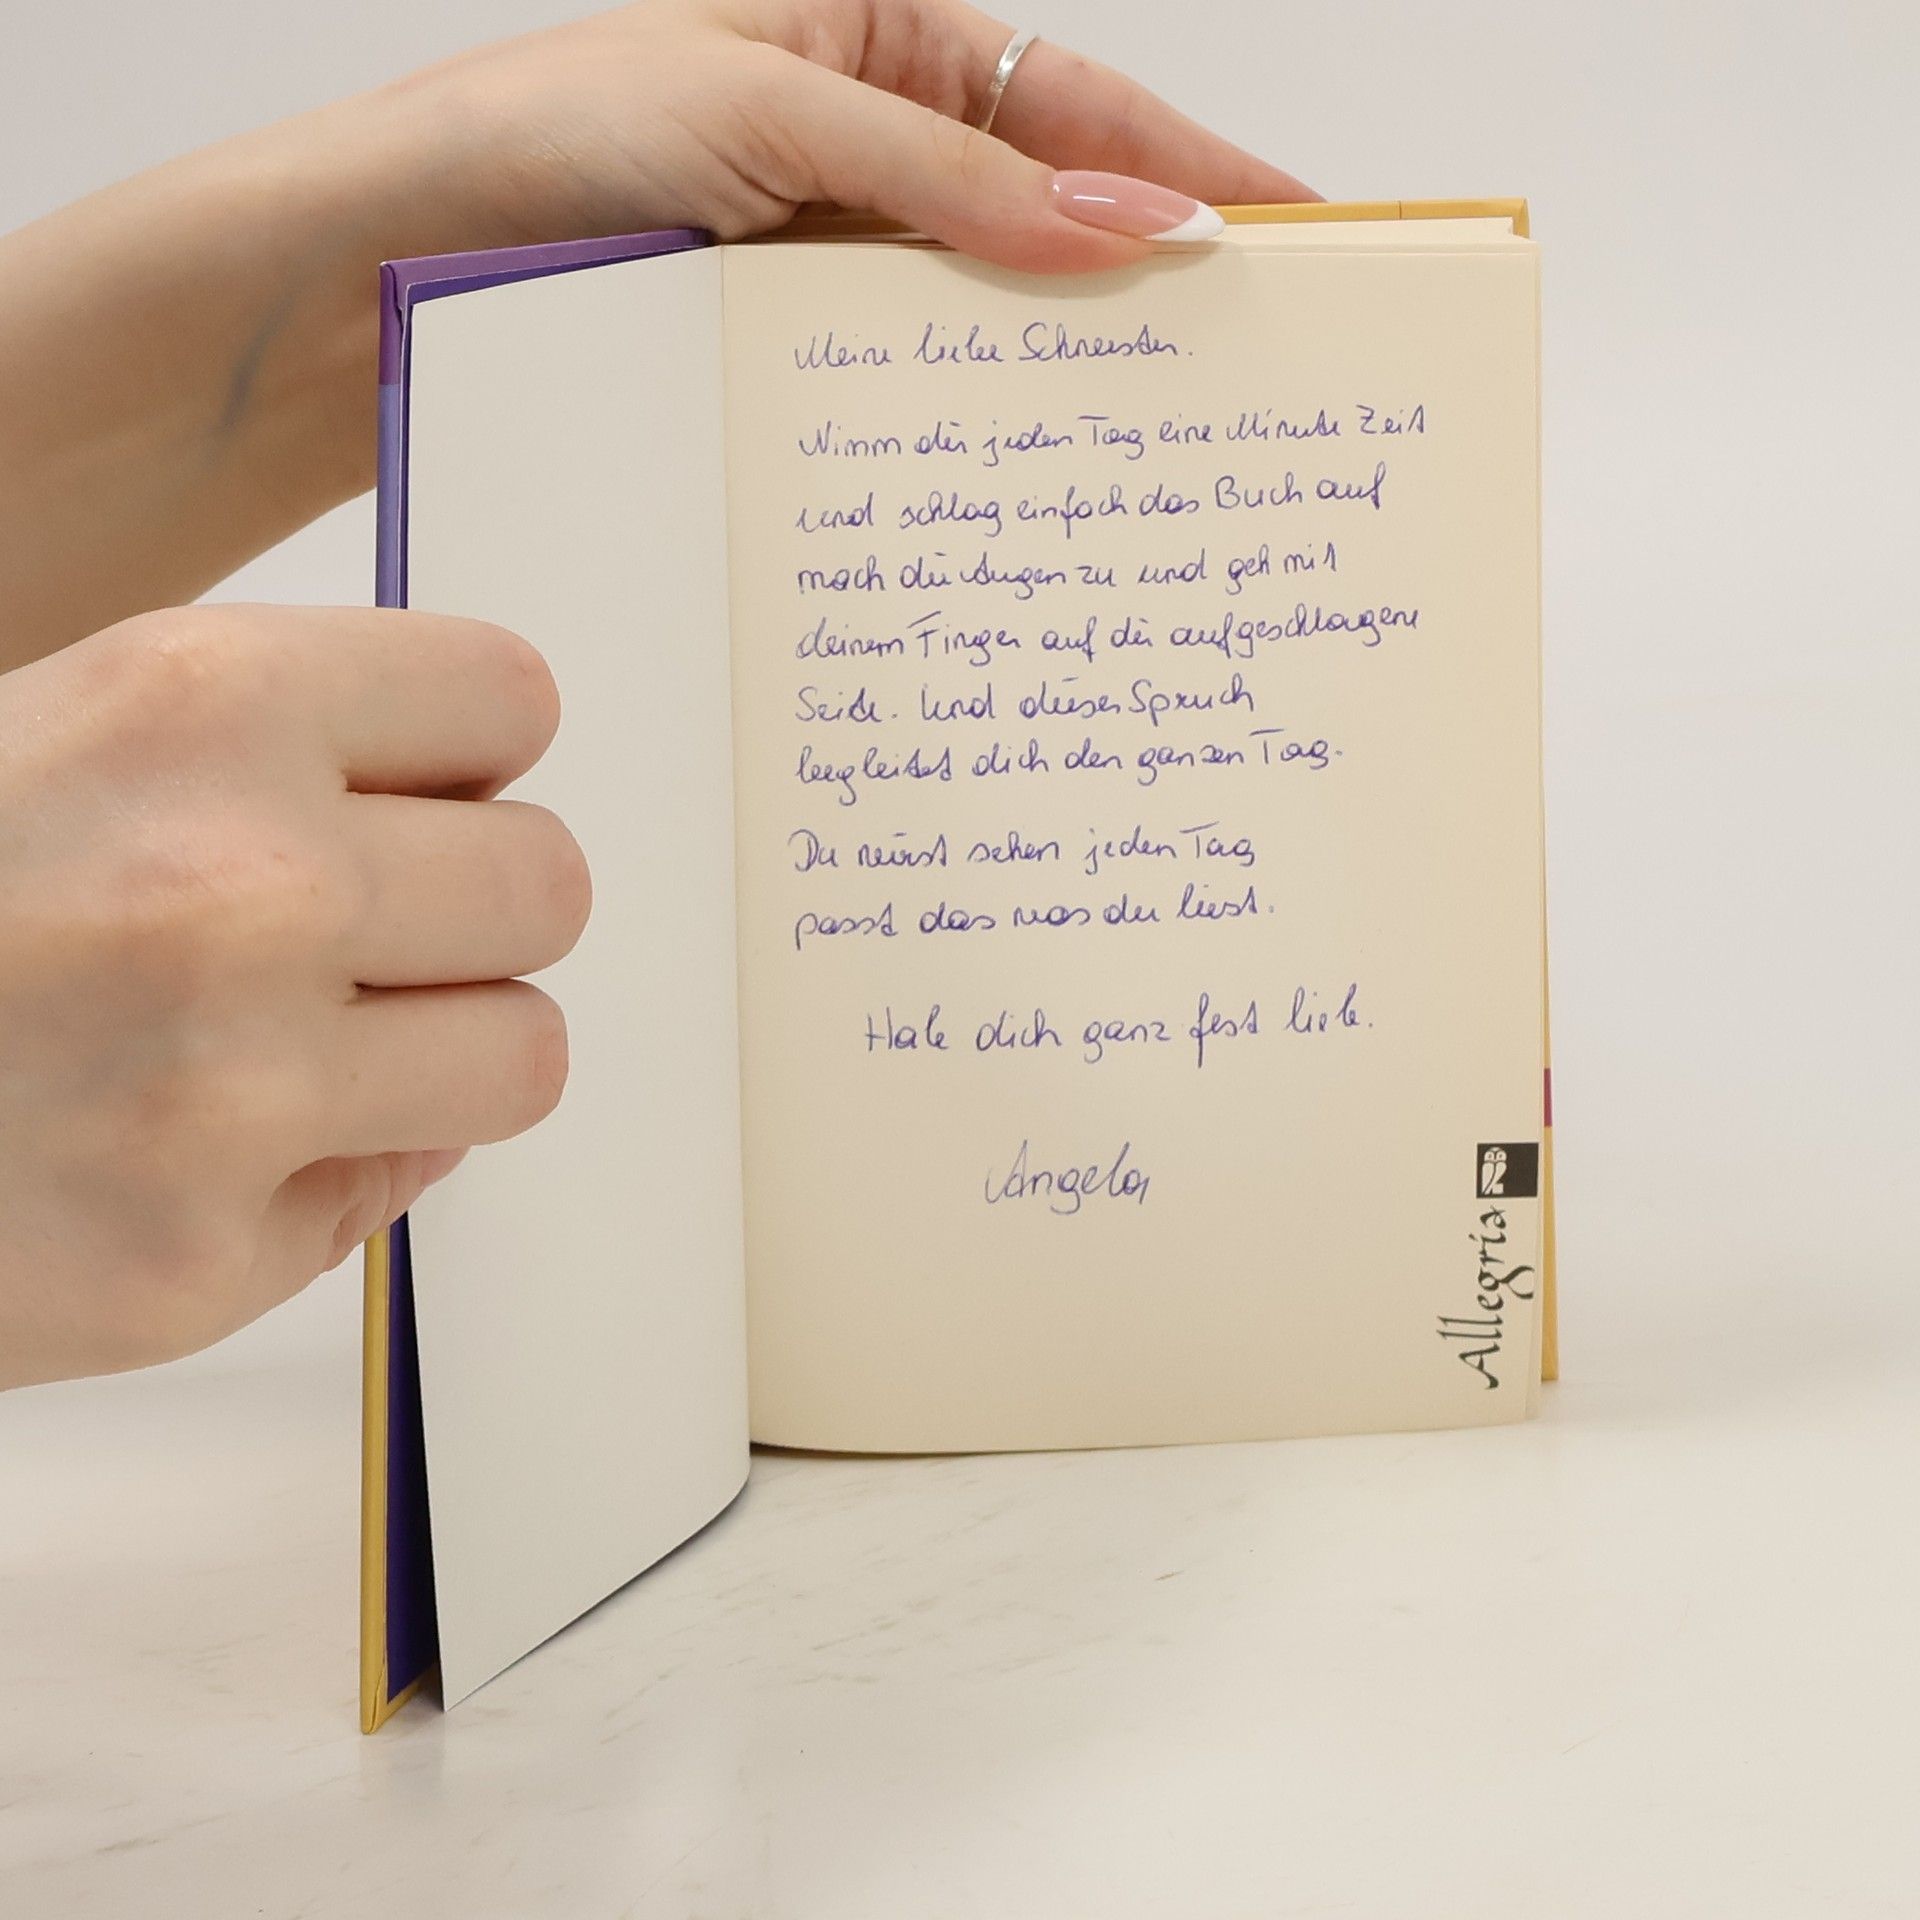 Meine liebe Schwester.
Nimm dir jeden Tag eine Minute Zeit
und schlag einfach das Buch auf
mach die Augen zu und geh mit
deinem Finger auf die aufgeschlagene
Seite. Und dieser Spruch
begleitet dich den ganzen Tag.
Du wirst sehen jeden Tag
passt das was du liest.
Hab dich ganz fest lieb.
Angela
Allegria